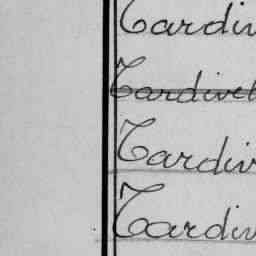 Tardiv
Tardivel
Tardiv
Tardiv